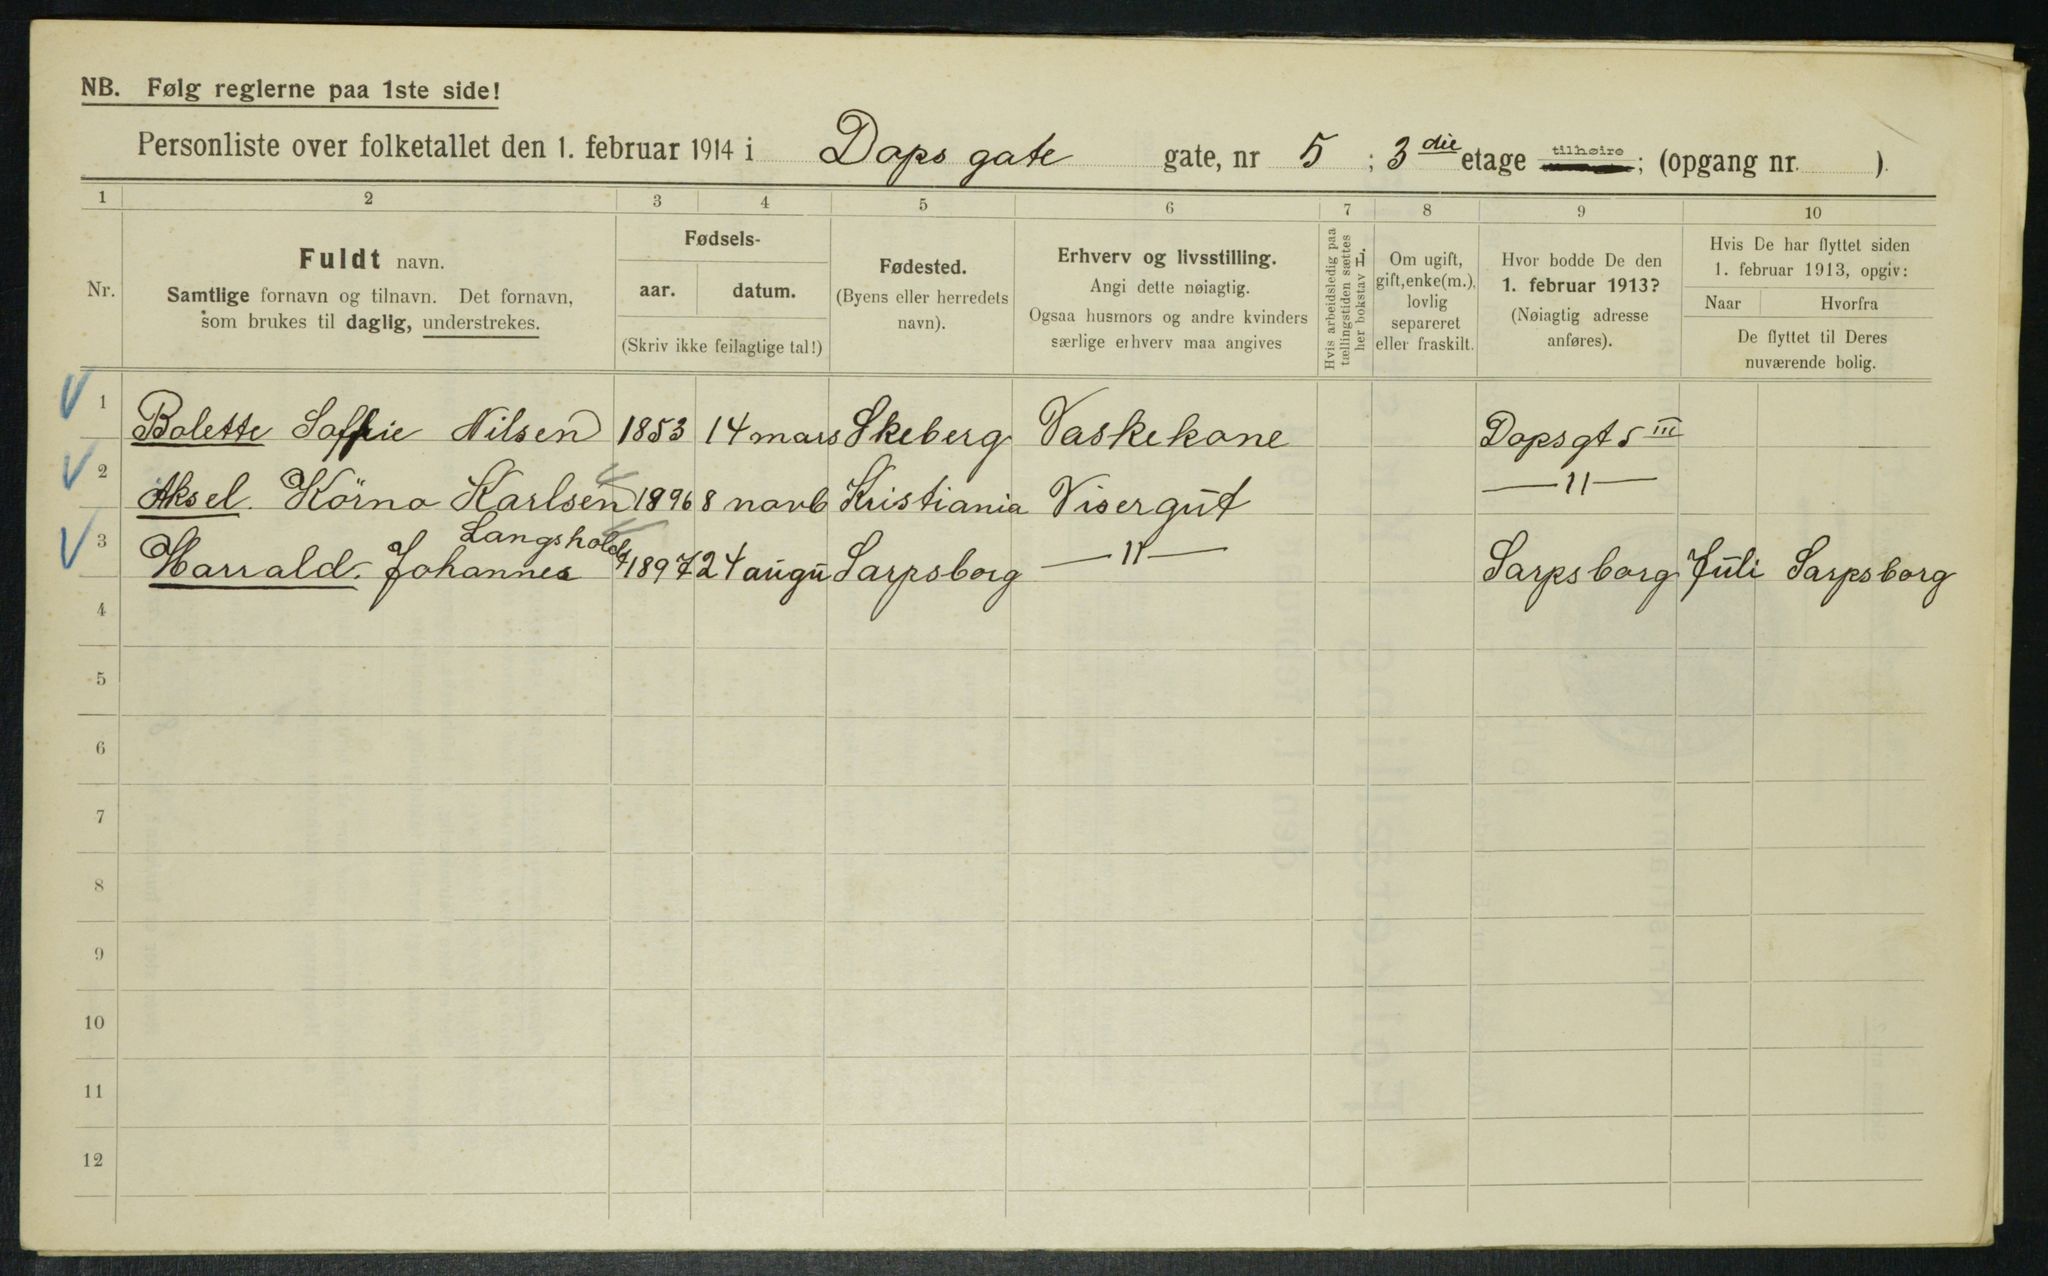 NB. Følg reglerne paa 1ste side!
Personliste over folketallet den 1. februar 1914 i Dops gate gate, nr 5 ; 3 die etage tilhøire ; (opgang nr. ).
1 2 3 4 5 6 7 8 9 10
Nr.
Fuldt navn.
Samtlige fornavn og tilnavn. Det fornavn,
som brukes til daglig, understrekes.
Fødsels-
aar. datum.
(Skriv ikke feilagtige tal!)
Fødested.
(Byens eller herredets
navn).
Erhverv og livsstilling.
Angi dette nøiagtig.
Ogsaa husmors og andre kvinders
særlige erhverv maa angives
Hvis arbeidsledig paa
tællingstiden sættes
her bokstav L.
Om ugift,
gift, enke(m.),
lovlig
separeret
eller fraskilt.
Hvor bodde De den
1. februar 1913?
(Nøiagtig adresse
anføres).
Hvis De har flyttet siden
1. februar 1913, opgiv:
Naar Hvorfra
De flyttet til Deres
nuværende bolig.
1 Bolette Soffie Nilsen 1853 14 mars Skeberg Vaskekone Dopsgt 5 III
2 Aksel. Körno Karlsen 1896 8 novb Kristiania Visergut —11—
Langsholdt
3 Harrald. Johannes 1897 24 augu Sarpsborg —11— Sarpsborg Juli Sarpsborg
4
5
6
7
8
9
10
11
12